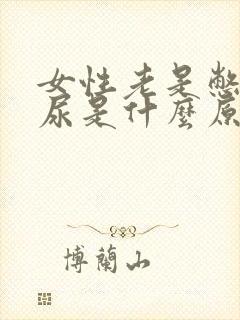 女性老是憋
尿是什麼原
博蘭山